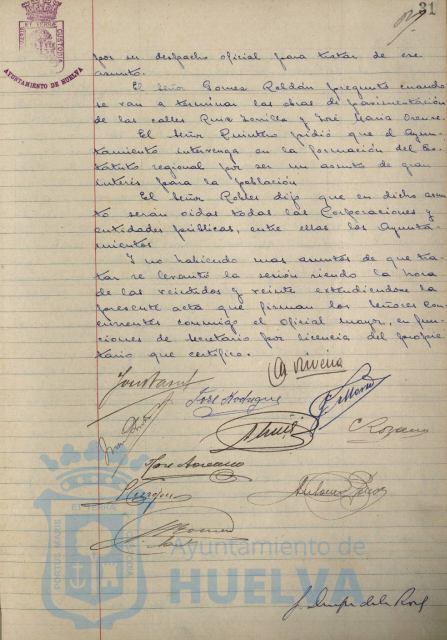 31
AYUNTAMIENTO DE HUELVA
por su despacho oficial para tratar de ese
asunto.
El Señor Gomez Roldán preguntó cuando
se van a terminar las obras de pavimentación
de las calles Ruiz Zorrilla y José Maria Orense.
El Señor Quintero pidió que el Ayun-
tamiento intervenga en la formación del Es-
tatuto regional por ser un asunto de gran
interés para la población
El Señor Robles dijo que en dicho asun-
to serán oidas todas las Corporaciones y
entidades públicas, entre ellas los Ayunta-
mientos.
Y no habiendo mas asuntos de que tra-
tar se levantó la sesión siendo la hora
de las veintidos y veinte extendiendose la
presente acta que firman los Señores Con-
currentes conmigo el Oficial mayor, en fun-
ciones de Secretario por licencia del propie-
tario que certifico.
José Rodriguez
C Rozano
Ayuntamiento de
HUELVA